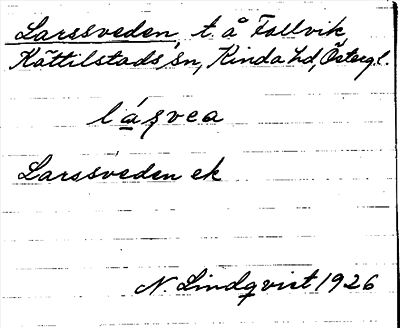 Larssveden, t. å Fallvik,
Kättilstads sn, Kinda hd, Östergl.
lá̱ʂvea
Larssveden ek
N. Lindqvist 1926